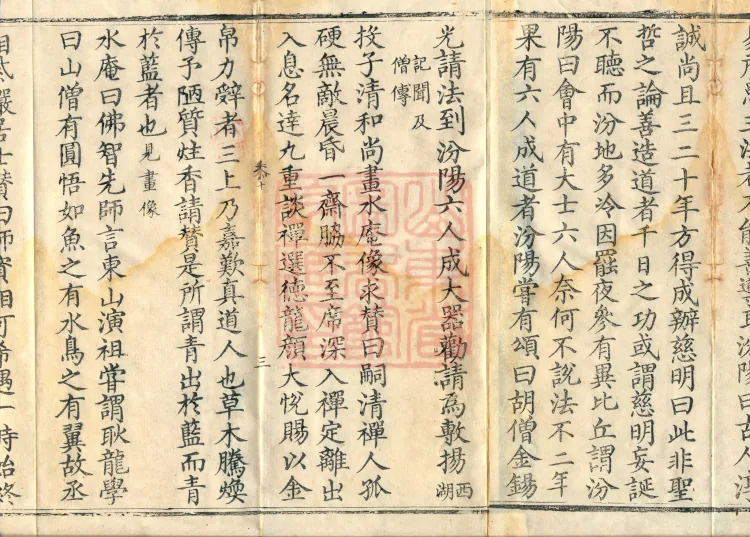 誠尚且三二十年方得成辦慈明曰此非聖
哲之論善造道者千日之功或謂慈明妄誕
不聽而汾地多冷因罷夜參有異比丘謂汾
陽曰會中有大士六人奈何不說法不二年
果有六人成道者汾陽嘗有頌曰胡僧金錫
光請法到汾陽六人成大器勸請為敷揚西湖
記聞及
僧傳
投子清和尚畫水庵像求贊曰嗣清禪人孤
硬無敵晨昏一齋脇不至席深入禪定離出
入息名達九重談禪選德龍顏大悅賜以金
卷十
三
帛力辤者三上乃嘉歎真道人也草木騰煥
傳予陋質炷香請贊是所謂青出於藍而青
於藍者也見畫像
水庵曰佛智先師言東山演祖甞謂耿龍學
曰山僧有圓悟如魚之有水鳥之有翼故丞
相紫巖居士贊曰師資相可希遇一時始終